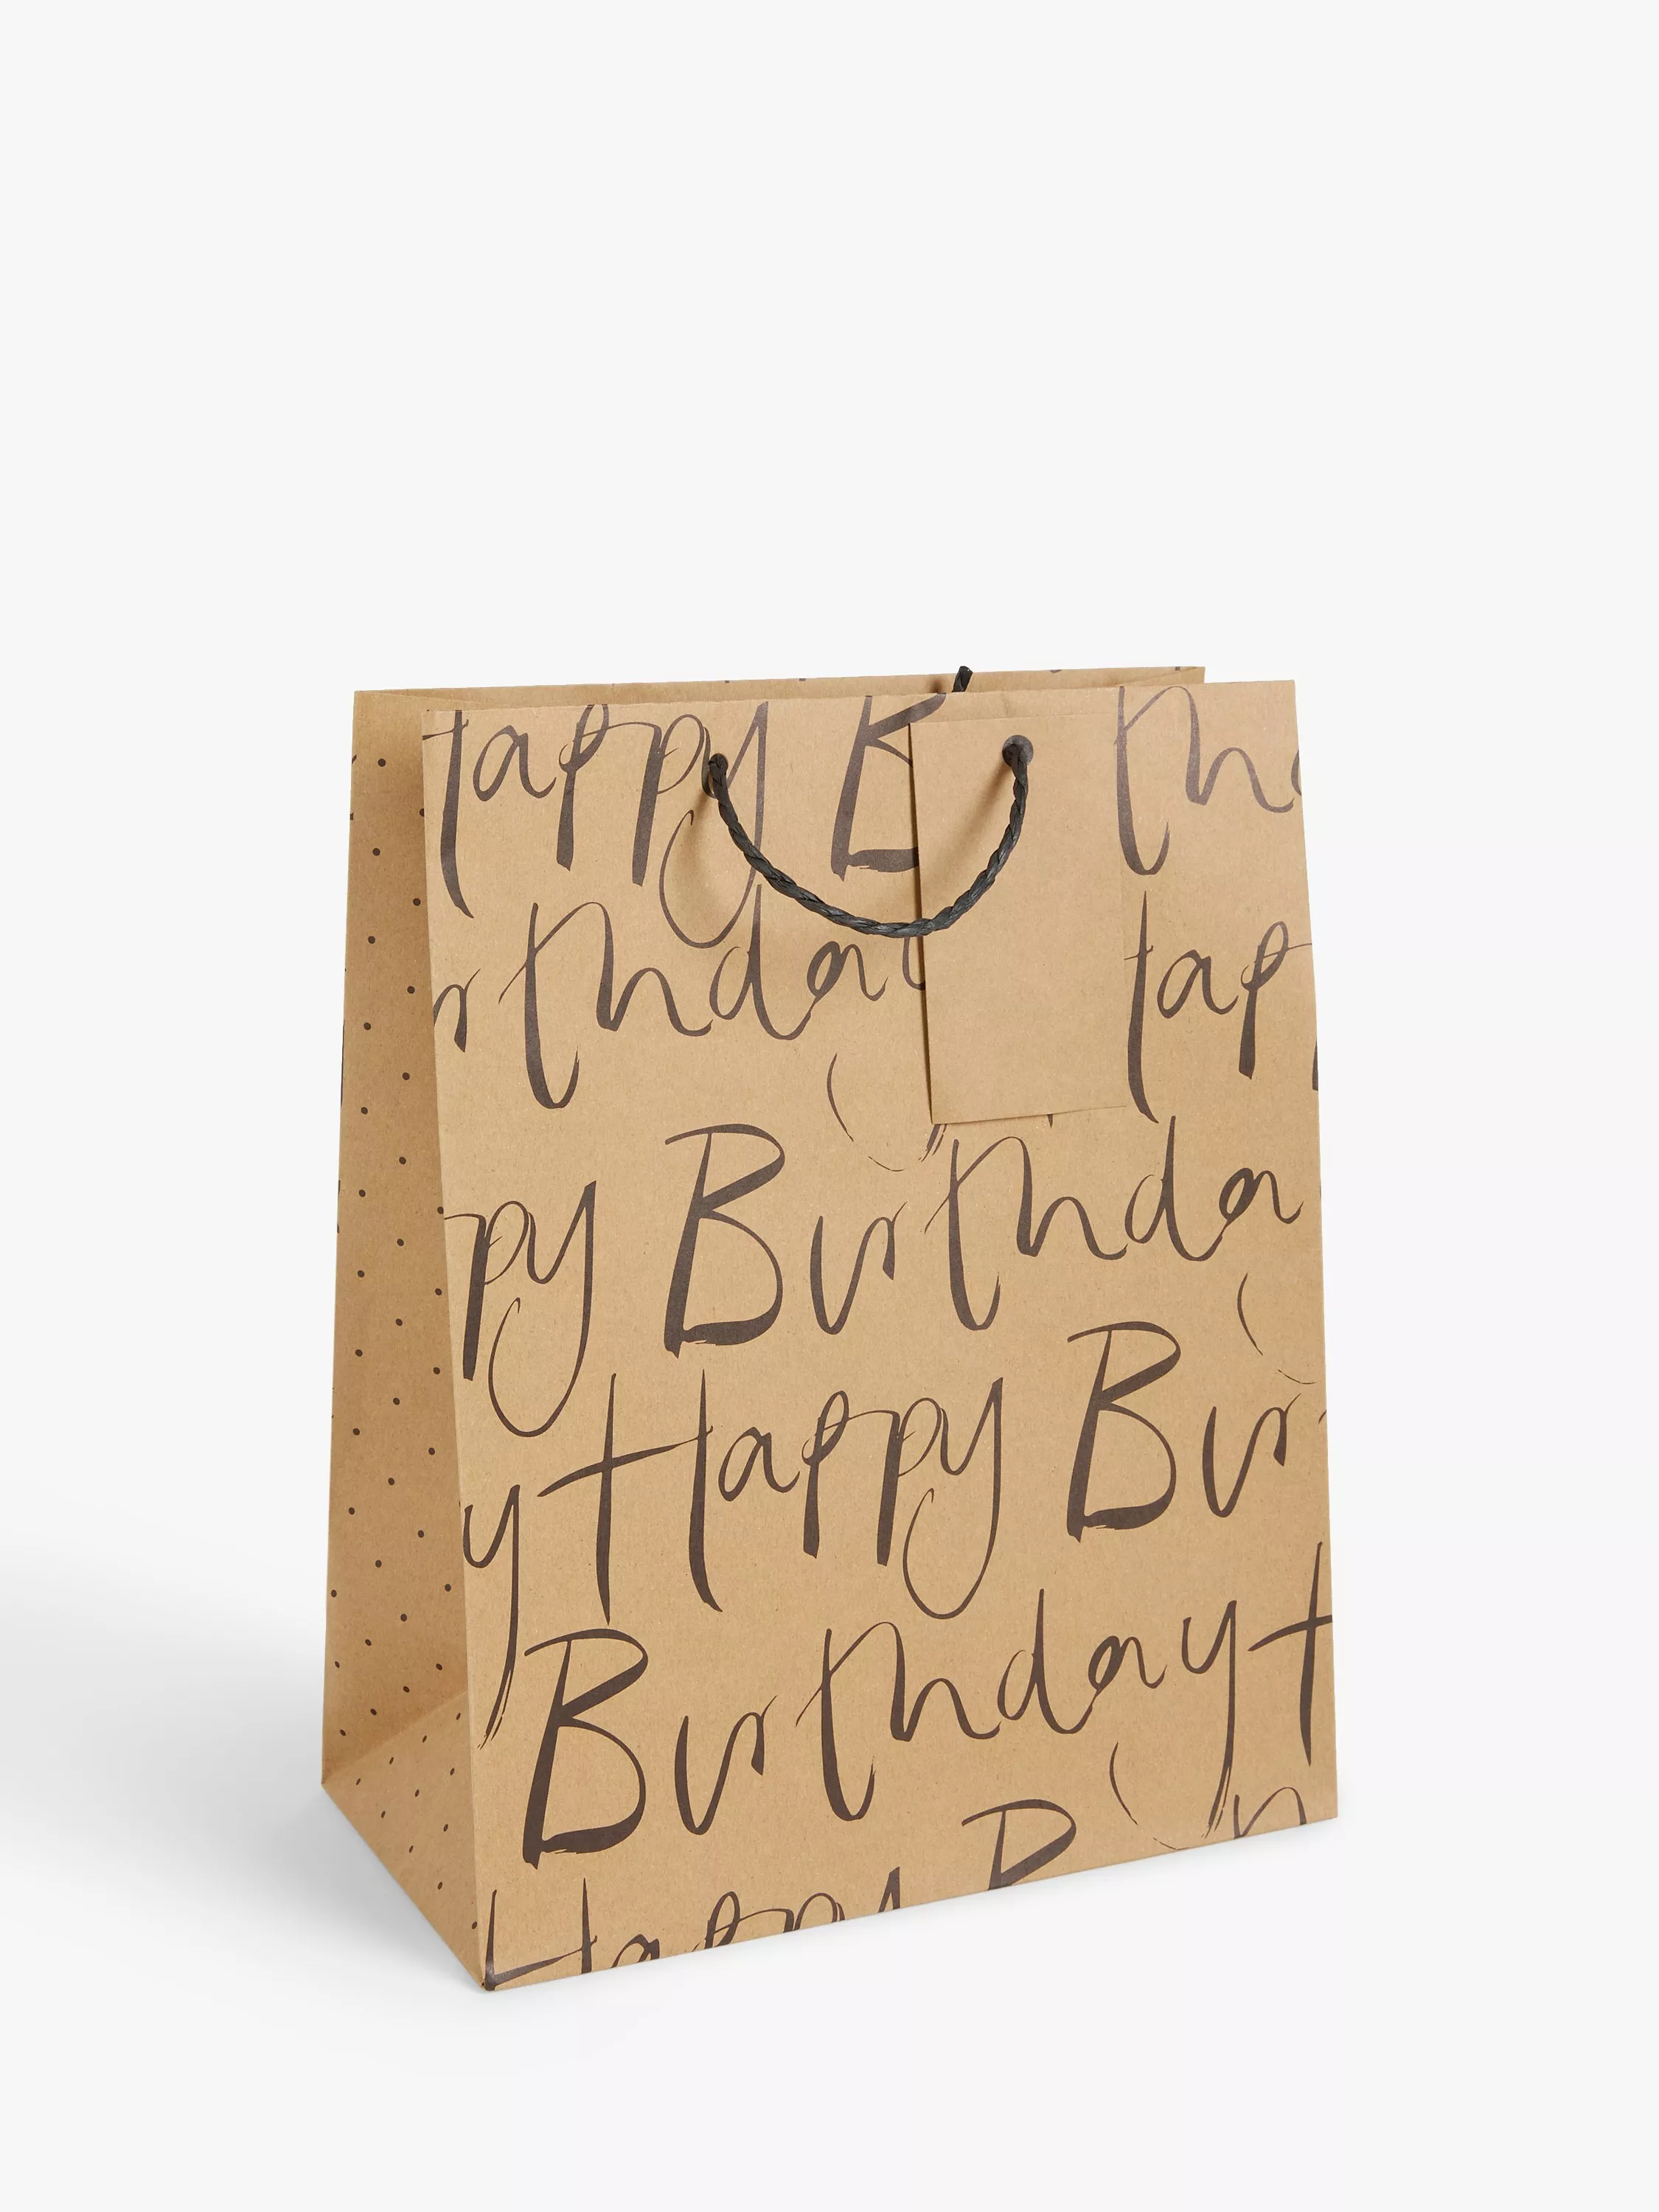 Happy B th
rthday Hap
py Birthda
y Happy Bir
Birthday H
Happy B